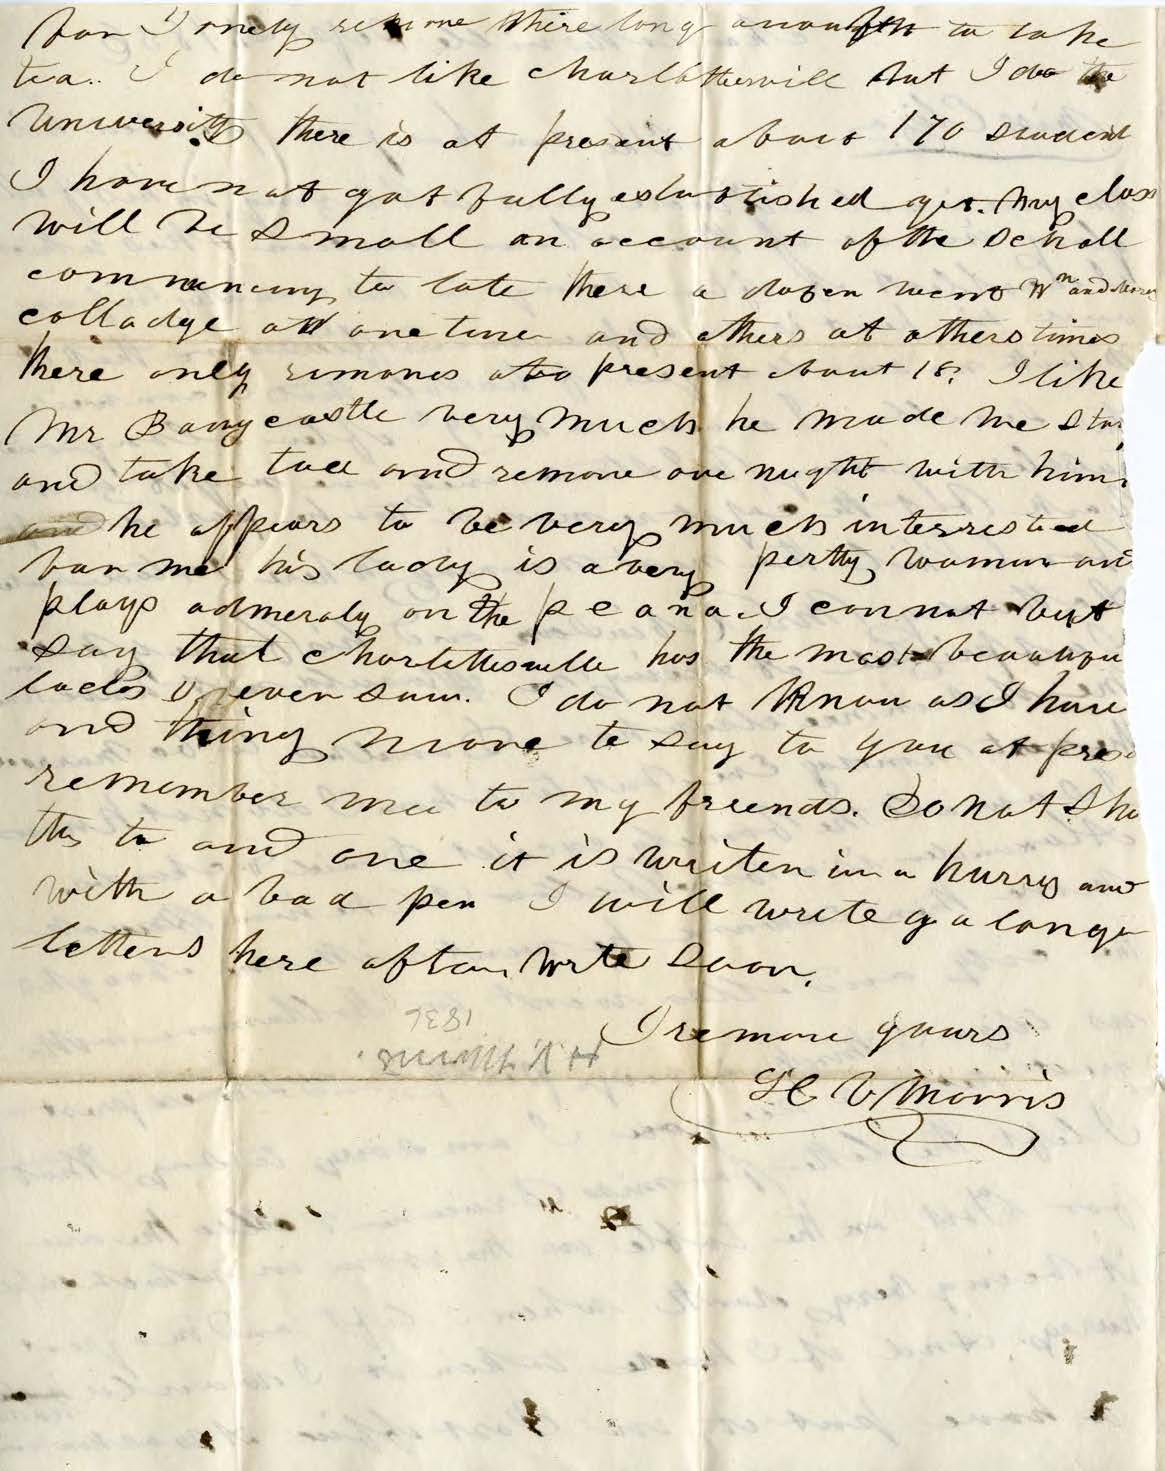 for I onely remone there long anough to take
tea.. I do not like Charlottersvill but I do the
University there is at present about 170 student
I have not got fully establtished yet. My class
will be small on account of the School
commencing to late there a dozen went Wm and Mary
colladge at one time and others at others times
there only remones at present about 18. I like
Mr Bonycastle very much he made me stay
and take tae and remone one nught with him
and he appears to be very much interrested
for me his lady is a very pertty woman and
plays admeraly on the peana. I connot but
say that Charlottesville has the most beautifu
ladies I ever saw. I do not know as I have
and thing more to say to you at prese
remember mee to my friends. Do not sho
this to and one it is writen in a hurry and
with a bad pen I will write y a longer
letters here after write soon.
I remone yours
H V Morris
1836
H. V. Morris